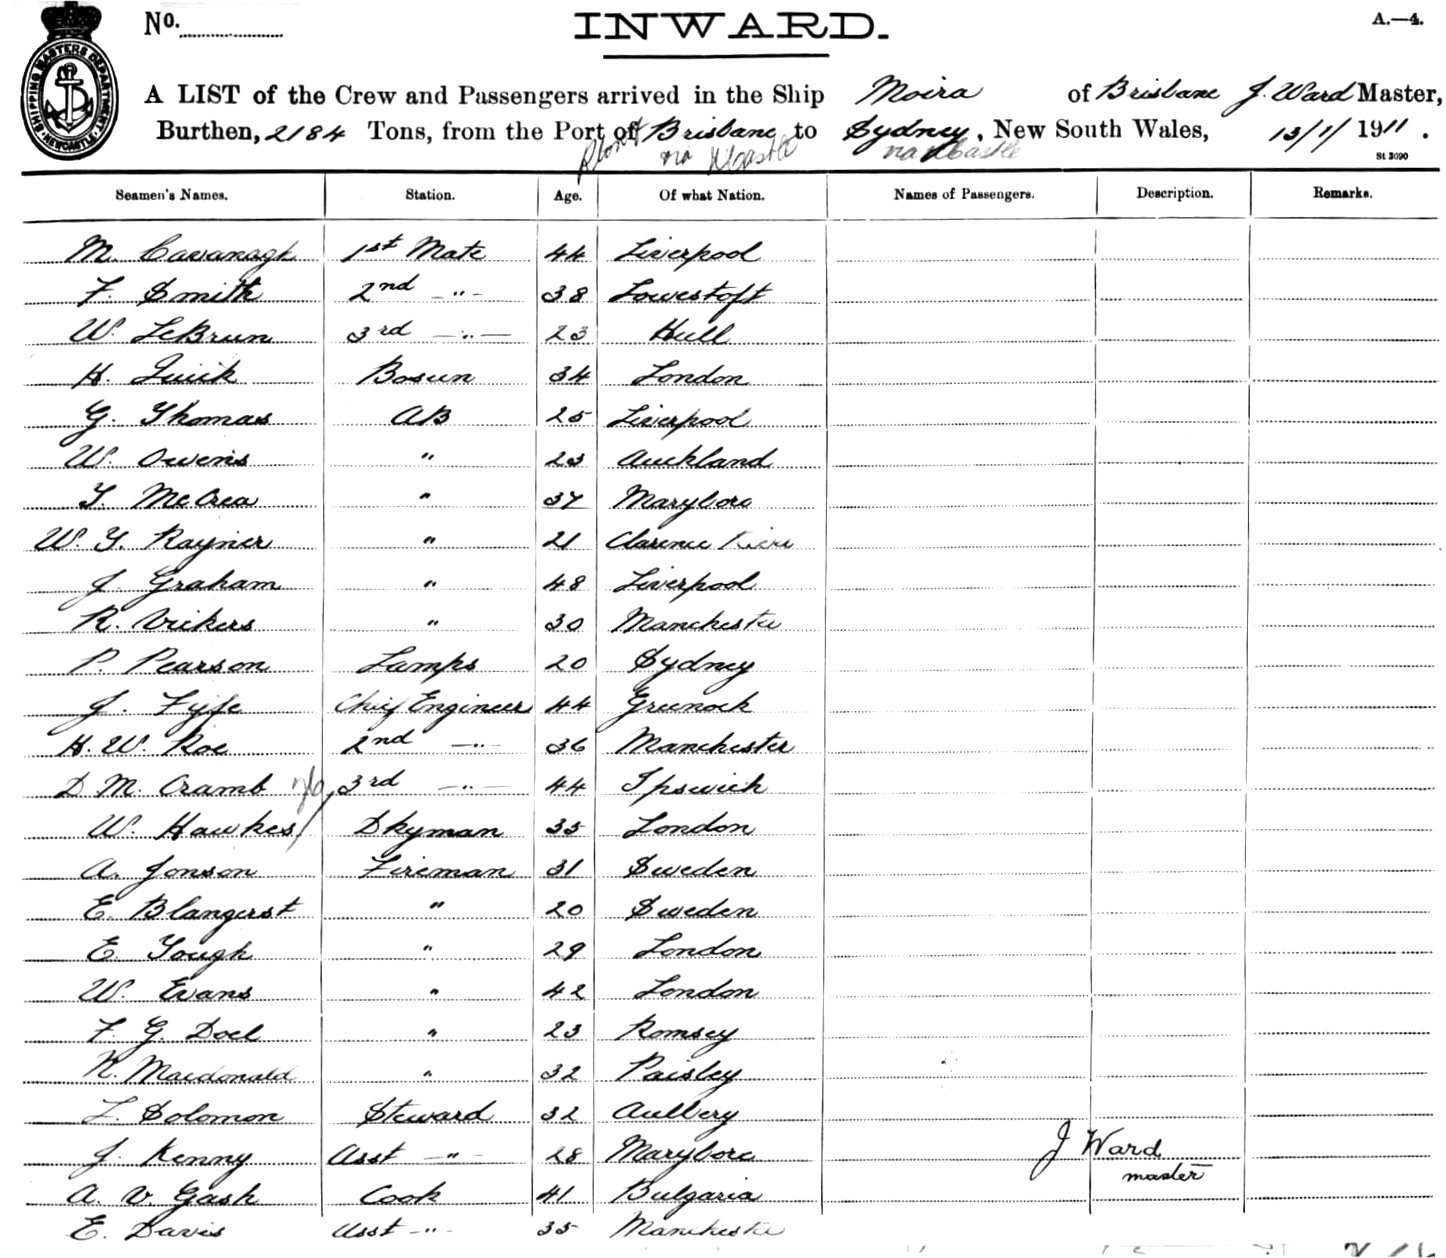 No. INWARD. A.—4.
A LIST of the Crew and Passengers arrived in the Ship Moira of Brisbane J. Ward Master,
Burthen, 2184 Tons, from the Port of Brisbane to Sydney, New South Wales, 13/1/1911.
via N'Castle via N'Castle
St 3090
SHIPPING MASTERS DEPARTMENT NEWCASTLE
Seamen's Names. Station. Age. Of what Nation. Names of Passengers. Description. Remarks.
M. Cavanagh 1st Mate 44 Liverpool
F. Smith 2nd -"- 38 Lowestoft
W. LeBrun 3rd -"- 23 Hull
H. Quick Bosun 34 London
G. Thomas AB 25 Liverpool
W. Owens " 23 Auckland
T. McCrea " 37 Maryboro
W. T. Rayner " 21 Clarence River
J. Graham " 48 Liverpool
R. Vickers " 30 Manchester
P. Pearson Lamps 20 Sydney
J. Fyfe Chief Engineer 44 Greenock
H. W. Roe 2nd -"- 36 Manchester
D. M. Cramb 3rd -"- 44 Ipswich
W. Hawkes Dkyman 35 London
A. Jonson Fireman 31 Sweden
E. Blangerst " 20 Sweden
E. Tough " 29 London
W. Evans " 42 London
F. G. Doel " 23 Romsey
K. Macdonald " 32 Paisley
L. Solomon Steward 32 Aulbery
J. Kenny Asst -"- 28 Maryboro
J Ward
master
A. V. Gash Cook 41 Bulgaria
E. Davis Asst -"- 35 Manchester